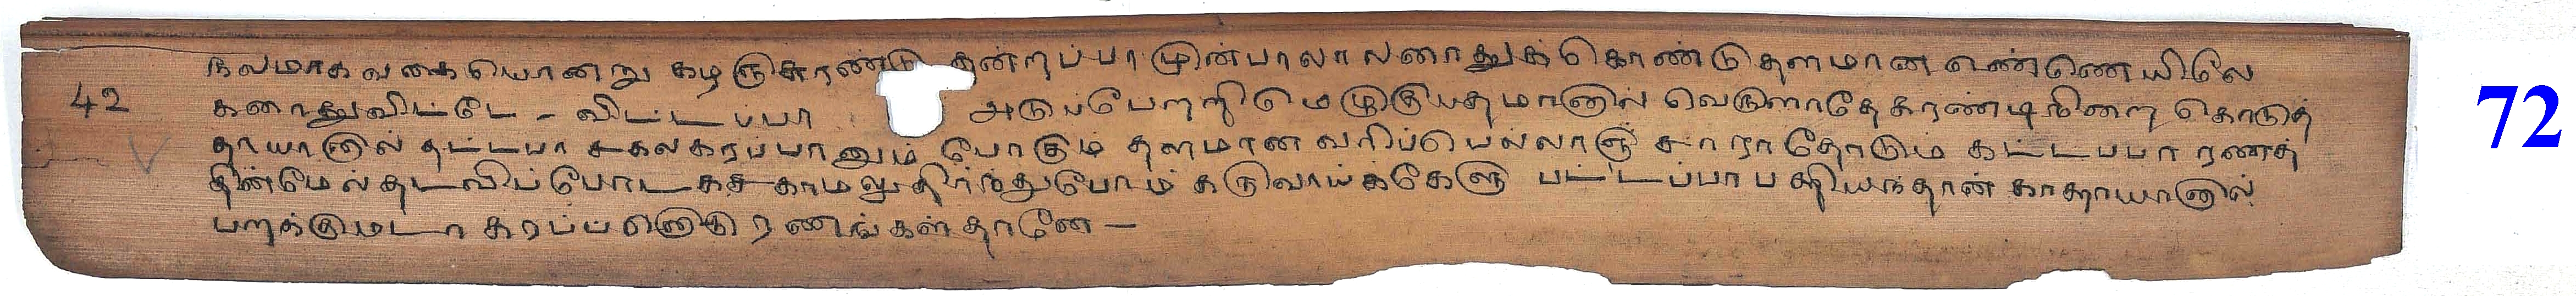 நலமாக வகையொனறு கழஞ்சுரண்டு தன்றப்பா முன்பாலாலரைதுக் கொண்டு தளமான எண்ணெயிலே
42 கரைதுவிட்டே - விட்டப்பா அடுப்பேறறி மெழுகுபதமானால் வெருளாதே கரண்டிநிறை கொடுத்
தாயானால் தட்டபா சகலகரப்பானும் போகும் தளமான வரிப்பெல்லாஞ் சாராதோடும் கட்டபபா ரணத்
தின்மேல் தடவிப் போடகசகாமலுதிர்ந்துபோம் கருவாய்க்கேளு பட்டப்பா பததியந்தான் காததாயானால்
பறக்குமடா கரப்பனொடு ரணங்கள்தானே —
72